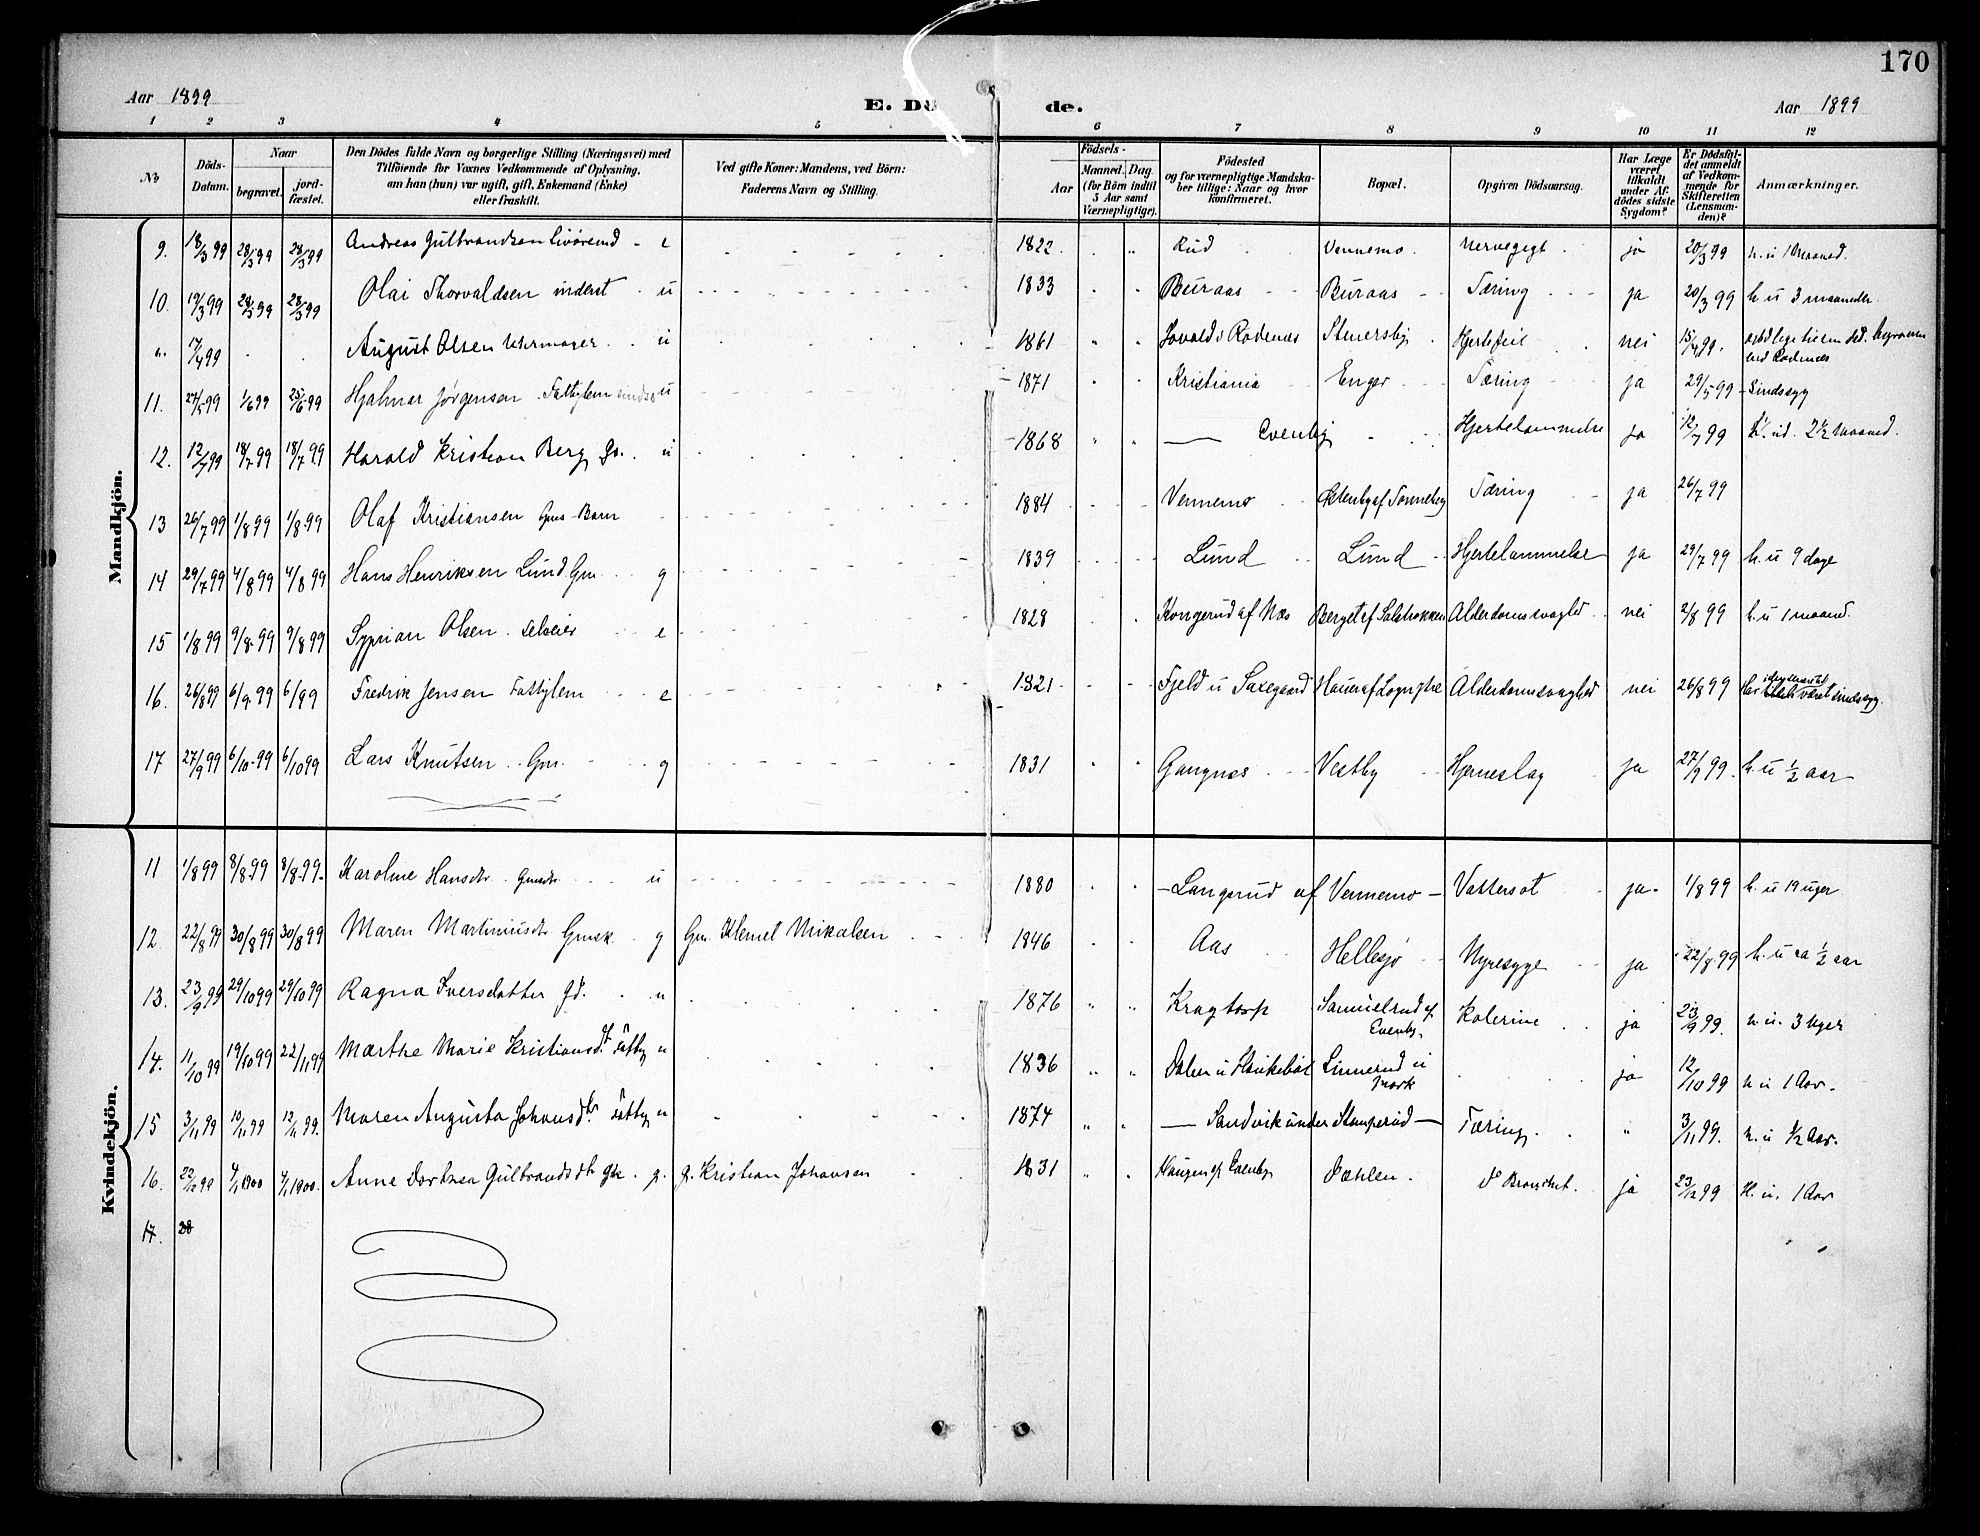 170
Aar 1899 E. Dö de. Aar 1899
1 2 3 4 5 6 7 8 9 10 11 12
No
Döds-Datum.
Naar
begravet.
jord-fæstet.
Den Dödes fulde Navn og borgerlige Stilling (Næringsvei) med
Tilföiende for Voxnes Vedkommende af Oplysning,
om han (hun) var ugift, gift, Enkemand (Enke)
eller fraskilt.
Ved gifte Koner: Mandens, ved Börn:
Faderens Navn og Stilling.
Födsels-
Aar
Maaned. Dag
(for Börn indtil
5 Aar samt
Værnepligtige).
Födested
og for værnepligtige Mandska-
ber tillige: Naar og hvor
konfirmeret.
Bopæl.
Opgiven Dödsaarsag.
Har Læge
været
tilkaldt
under Af-
dödes sidste
Sygdom?
Er Dödsfal-
det anmeldt
af Vedkom-
mende for
Skifteretten
(Lensman-
den)?
Anmærkninger.
Mandkjön.
9. 18/3 99 28/3 99 28/3 99 Andreas Gulbrandsen - e 1822 Rud Vennemo. Nervegigt ja 20/3 99 h. u 1 Maaned.
10. 19/3 99 28/3 99 28/3 99 Olai Thorvaldsen inderst u 1833 Buraas Buraas Tæring ja 20/3 99 h u 3 maaneder.
n. 17/4 99 August Olsen Uhrmager u 1861 Rødenæs Stenersby Hjertefeil nei 15/4 99. begraven
ved Rødenæs
11. 27/5 99 1/6 99 25/6 99 Hjalmar Jørgensen Fattiglem u 1871 Kristiania Enger Tæring ja 29/5 99 Sindssyg
12. 12/7 99 18/7 99 18/7 99 Harald Kristian Berg Gs. u 1868 Evenby Hjertelammelse ja 12/7 99 2½ Maaned.
13 26/7 99 1/8 99 1/8 99 Olaf Kristiansen Gms Barn 1884 Vennemo Tæring ja 26/7 99
14 29/7 99 4/8 99 4/8 99 Hans Henriksen Lund Gm. g 1839 Lund Lund Hjertelammelse ja 29/7 99 h. u 9 dage
15 1/8 99 9/8 99 9/8 99 Syprian Olsen selveier e 1828 Kongerud af Næs Berget af Alderdomsvaghed nei 2/8 99 h. u 1 maaned.
16. 26/8 99 6/9 99 6/9 99 Fredrik Jensen Fattiglem e 1821 Fjeld u Saxegaard Alderdomsvaghed nei 26/8 99 Har været sindssyg.
17 27/9 99 6/10 99 6/10 99 Lars Knutsen Gm. g 1831 Gangnæs Vestby Hjerneslag ja 27/9 99. h. u ½ aar
Kvindekjön.
11 1/8 99 8/8 99 8/8 99. Karoline Hansdtr. Gmsdtr. u 1880 Langerud af Vennemo Vattersot ja 1/8 99 h. u 19 uger
12 22/8 99 30/8 99 30/8 99 Maren Martiniusdtr Gmsk. g Gm. Klemet Mikalsen 1846 Aas Hellesjø Nyresyge ja 22/8 99 h. u ca ½ aar
13. 23/9 99 29/10 99 29/10 99 Ragna Iversdatter Gd. u 1876 Kragtorp Samuelsrud af
Evenby. Kolerine ja 23/9 99. h. u. 3 Uger
14. 11/10 99 19/10 99 22/11 99 Marthe Marie Kristiansdt. Fattig u 1836 Dalen u Linnerud u
Mork ja 12/10 99 h u 1 Aar.
15 3/11 99 10/11 99 12/11 99. Maren Augusta Johansdtr. Fattig u 1874 Sandvik under Stomperud Tæring. " 3/11 99. h. u ½ Aar.
16. 22/12 99 4/1 1900 4/1 1900. Anne Dorthea Gulbrandsdtr Gk. g. g. Kristian Johansen 1831 Haugen af Evenby Dæhlen. ja 23/12 99 H. u. 1 Aar
17. 28